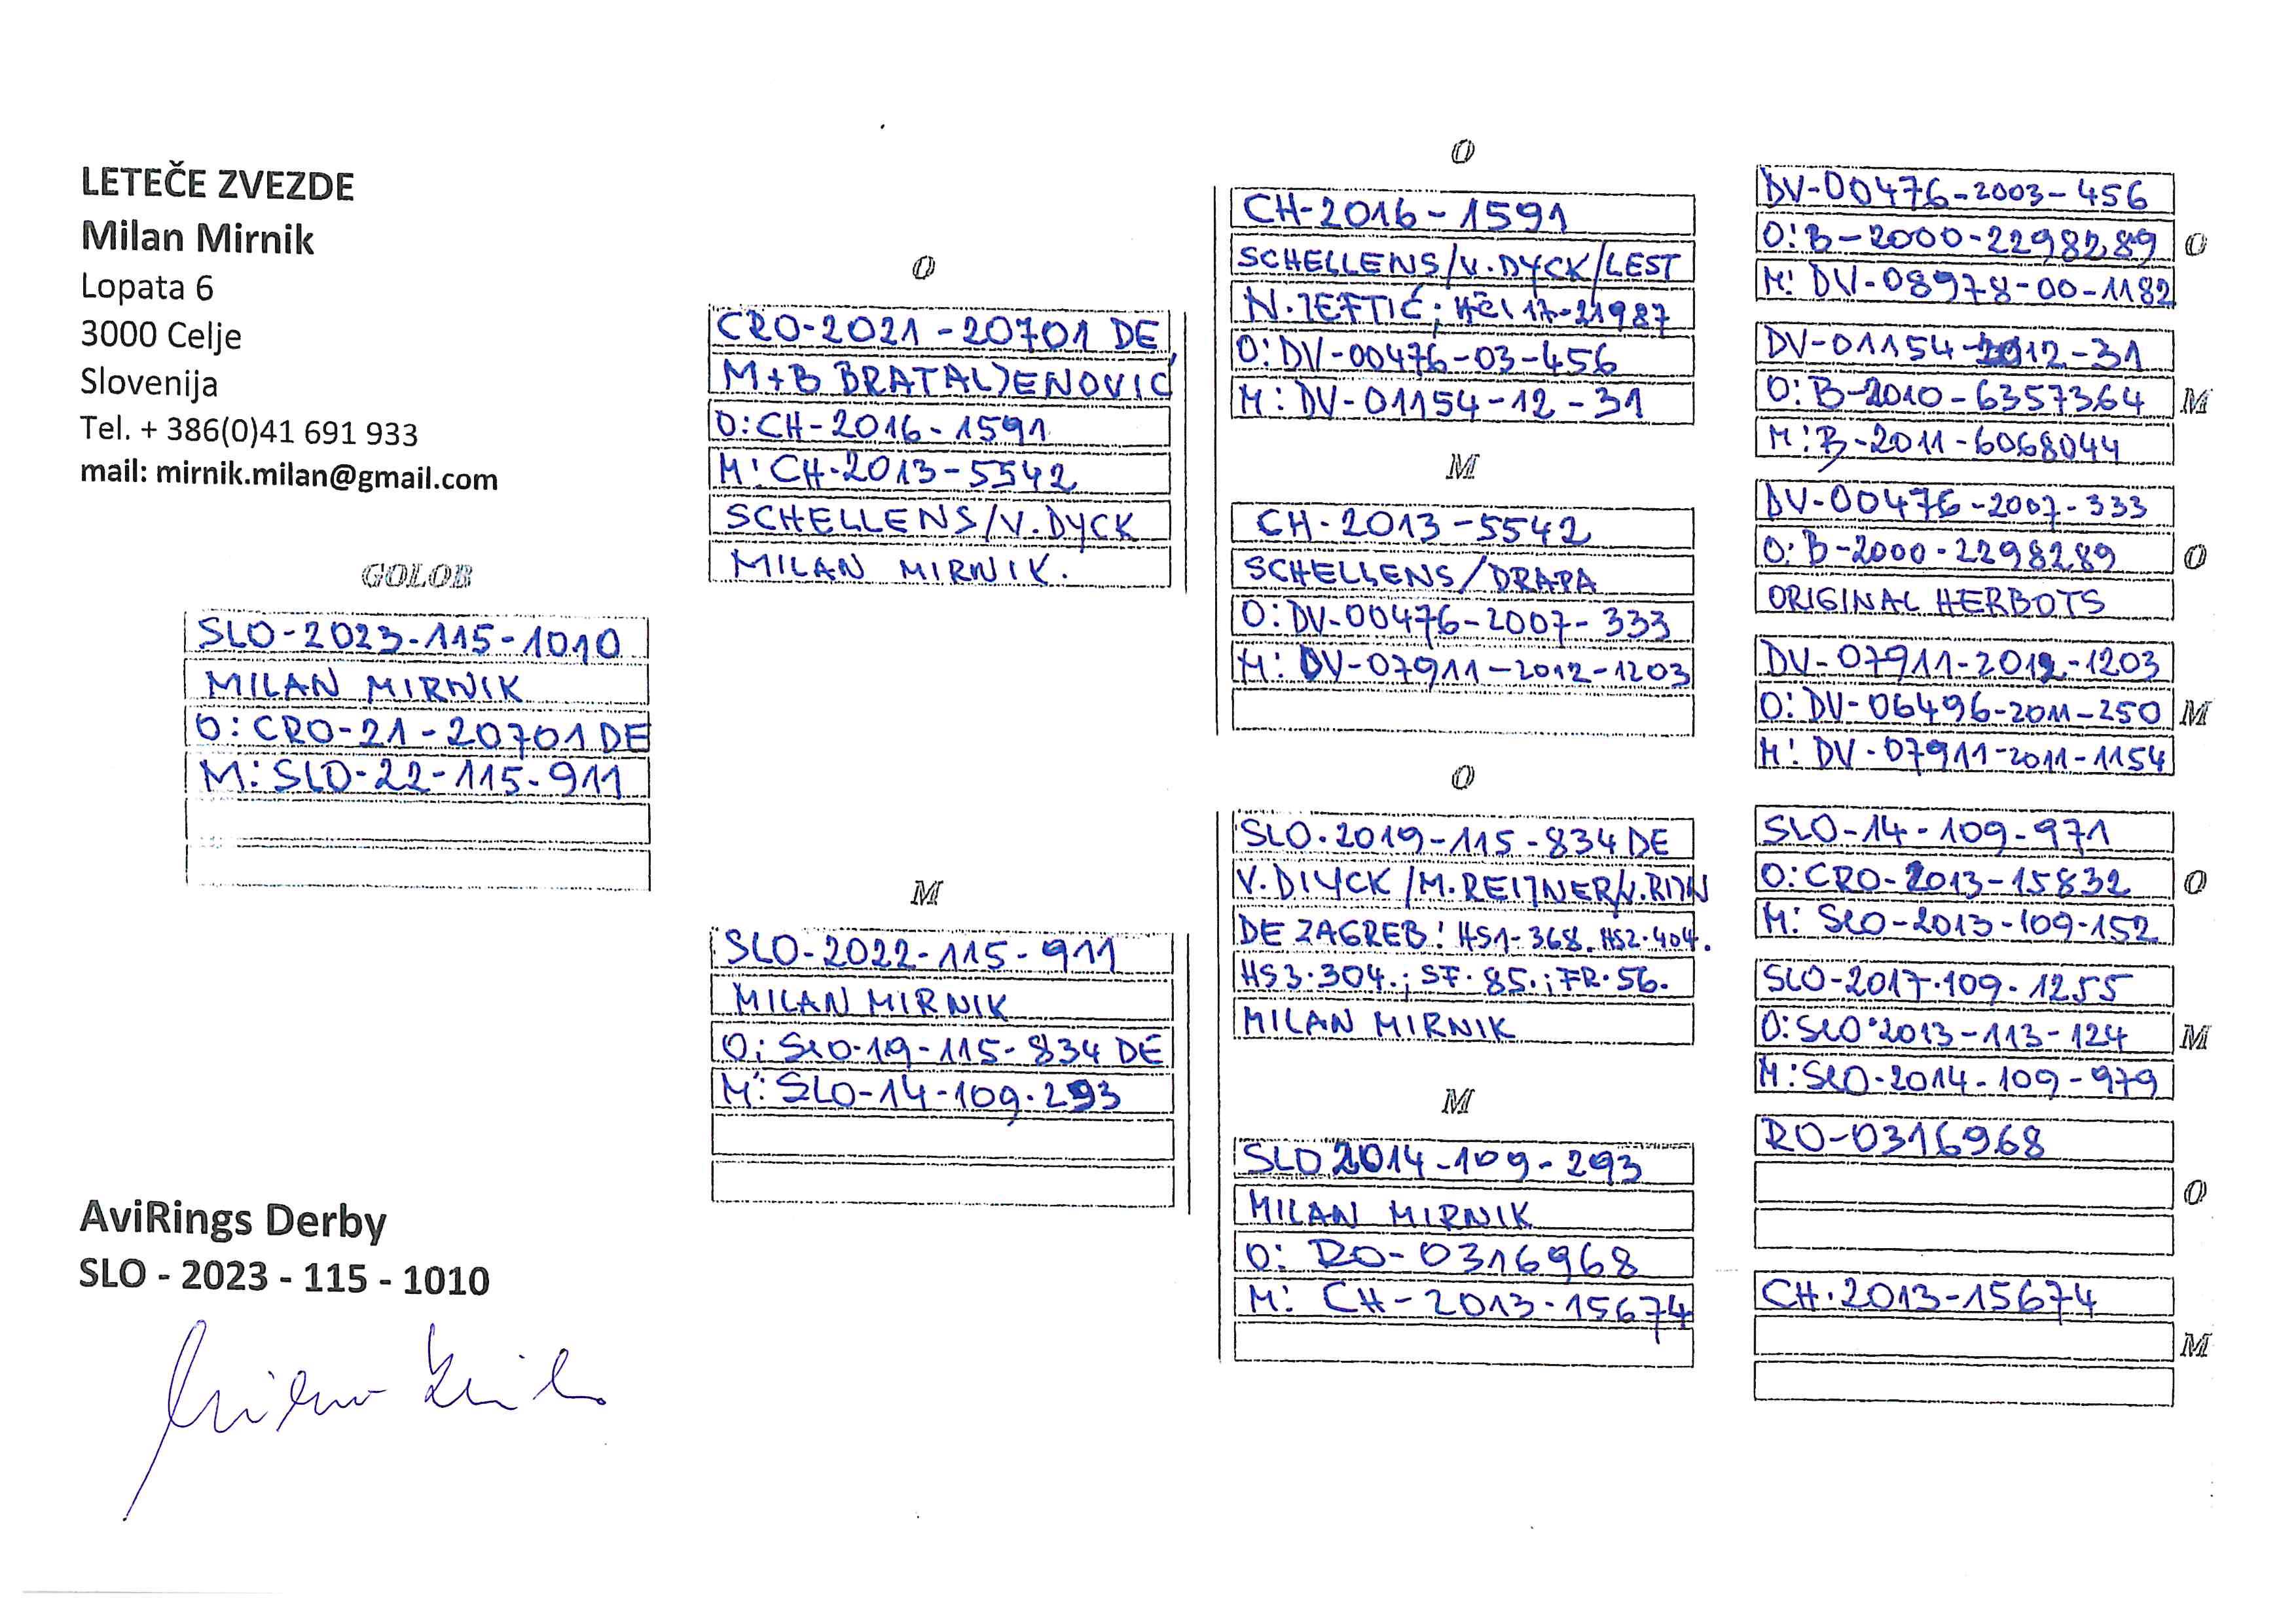 LETEČE ZVEZDE
Milan Mirnik
Lopata 6
3000 Celje
Slovenija
Tel. + 386(0)41 691 933
mail: mirnik.milan@gmail.com
GOLOB
SLO-2023-115-1010
MILAN MIRNIK
O: CRO-21-20701 DE
M: SLO-22-115-911
AviRings Derby
SLO - 2023 - 115 - 1010
O
CRO-2021-20701 DE
M+B BRATALJENOVIĆ
O: CH-2016-1591
M: CH-2013-5542
SCHELLENS/V.DYCK
MILAN MIRNIK.
M
SLO-2022-115-911
MILAN MIRNIK
O: SLO-19-115-834 DE
M: SLO-14-109-293
O
CH-2016-1591
SCHELLENS/V.DYCK/LEST
N.JEFTIĆ; 17-21987
O: DV-00476-03-456
M: DV-01154-12-31
M
CH-2013-5542
SCHELLENS/DRAPA
O: DV-00476-2007-333
M: DV-07911-2012-1203
O
SLO-2019-115-834 DE
V.DIYCK/M.REIJNER/V.RIJN
DE ZAGREB: HS1-368. HS2-404.
HS3-304.; SF-85.; FR-56.
MILAN MIRNIK
M
SLO 2014-109-293
MILAN MIRNIK
O: RO-0316968
M: CH-2013-15674
DV-00476-2003-456
O: B-2000-2298289 O
M: DV-08978-00-1182
DV-01154-2012-31
O: B-2010-6357364 M
M: B-2011-6068044
DV-00476-2007-333
O: B-2000-2298289 O
ORIGINAL HERBOTS
DV-07911-2012-1203
O: DV-06496-2011-250 M
M: DV-07911-2011-1154
SLO-14-109-971
O: CRO-2013-15832 O
M: SLO-2013-109-152
SLO-2017-109-1255
O: SLO-2013-113-124 M
M: SLO-2014-109-979
RO-0316968
O
CH-2013-15674
M